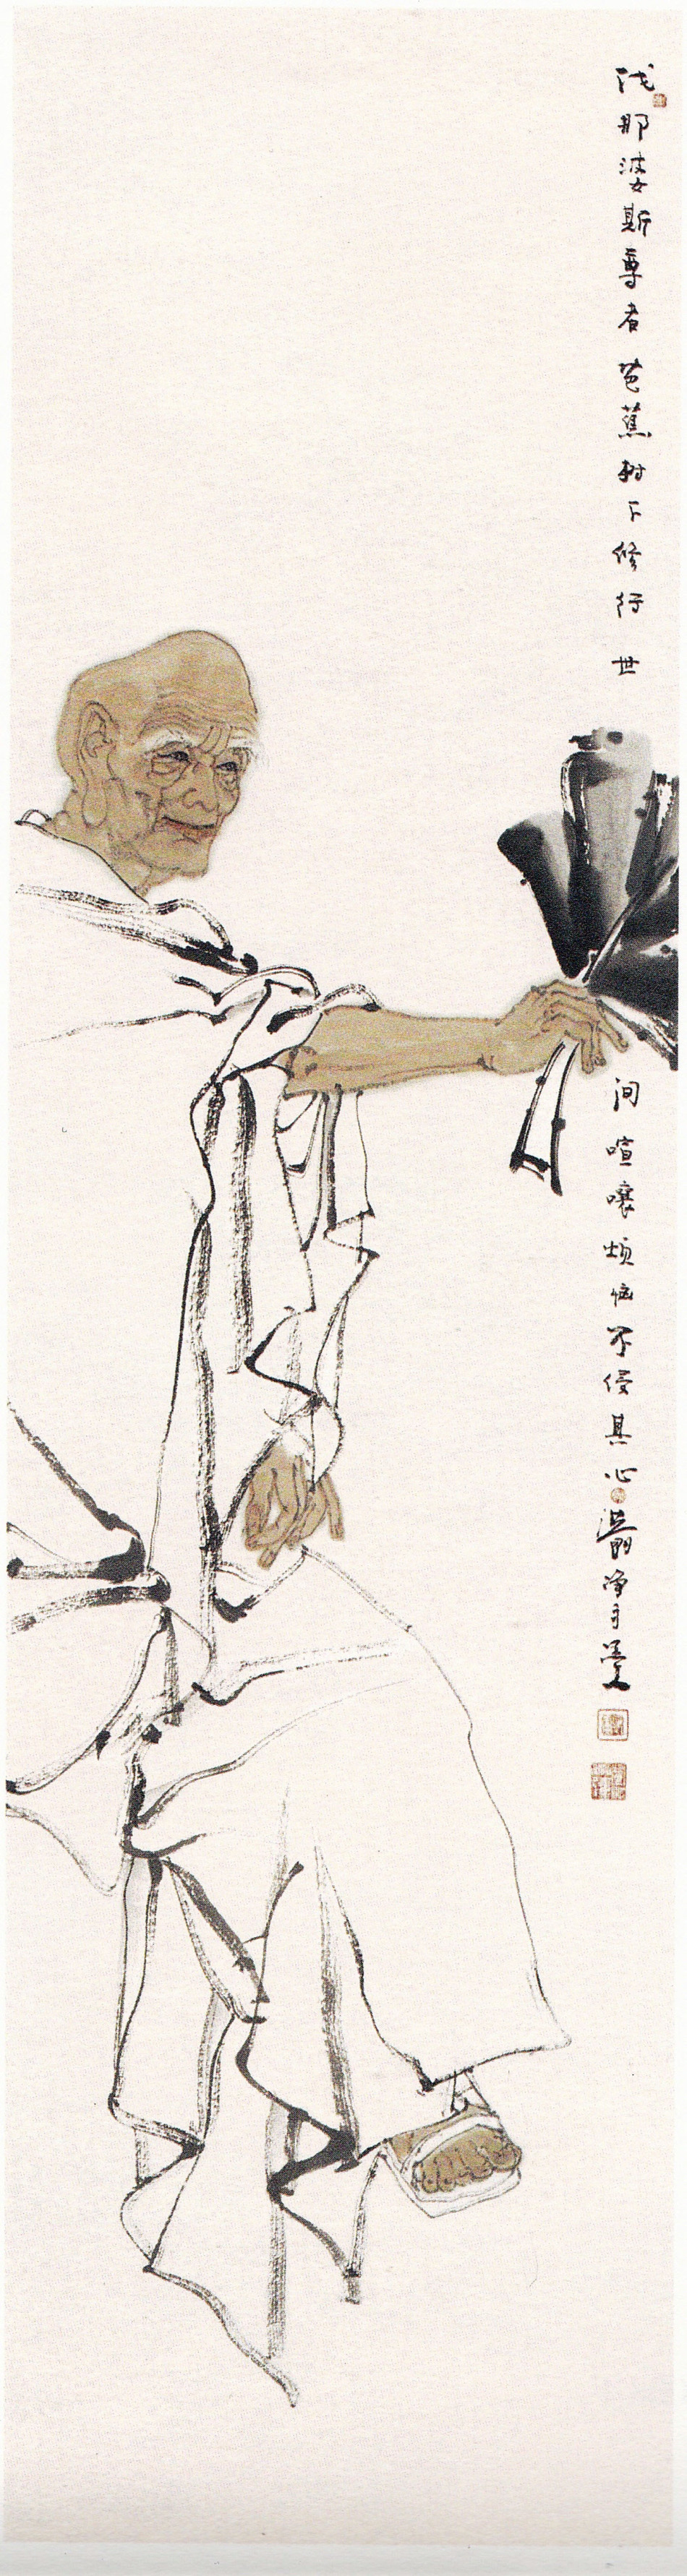 伐那婆斯尊者芭蕉树下修行世
间喧嚷烦恼不侵其心